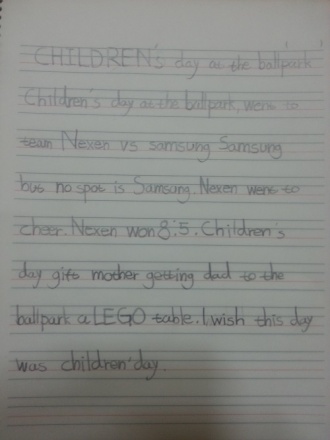 CHILDREN's day at the ballpark
Children's day at the ballpark, went to
team Nexen vs samsung Samsung
but no spot is Samsung. Nexen went to
cheer. Nexen won 8:5. Children's
day gift mother getting dad to the
ballpark a LEGO table. I wish this day
was children'day.